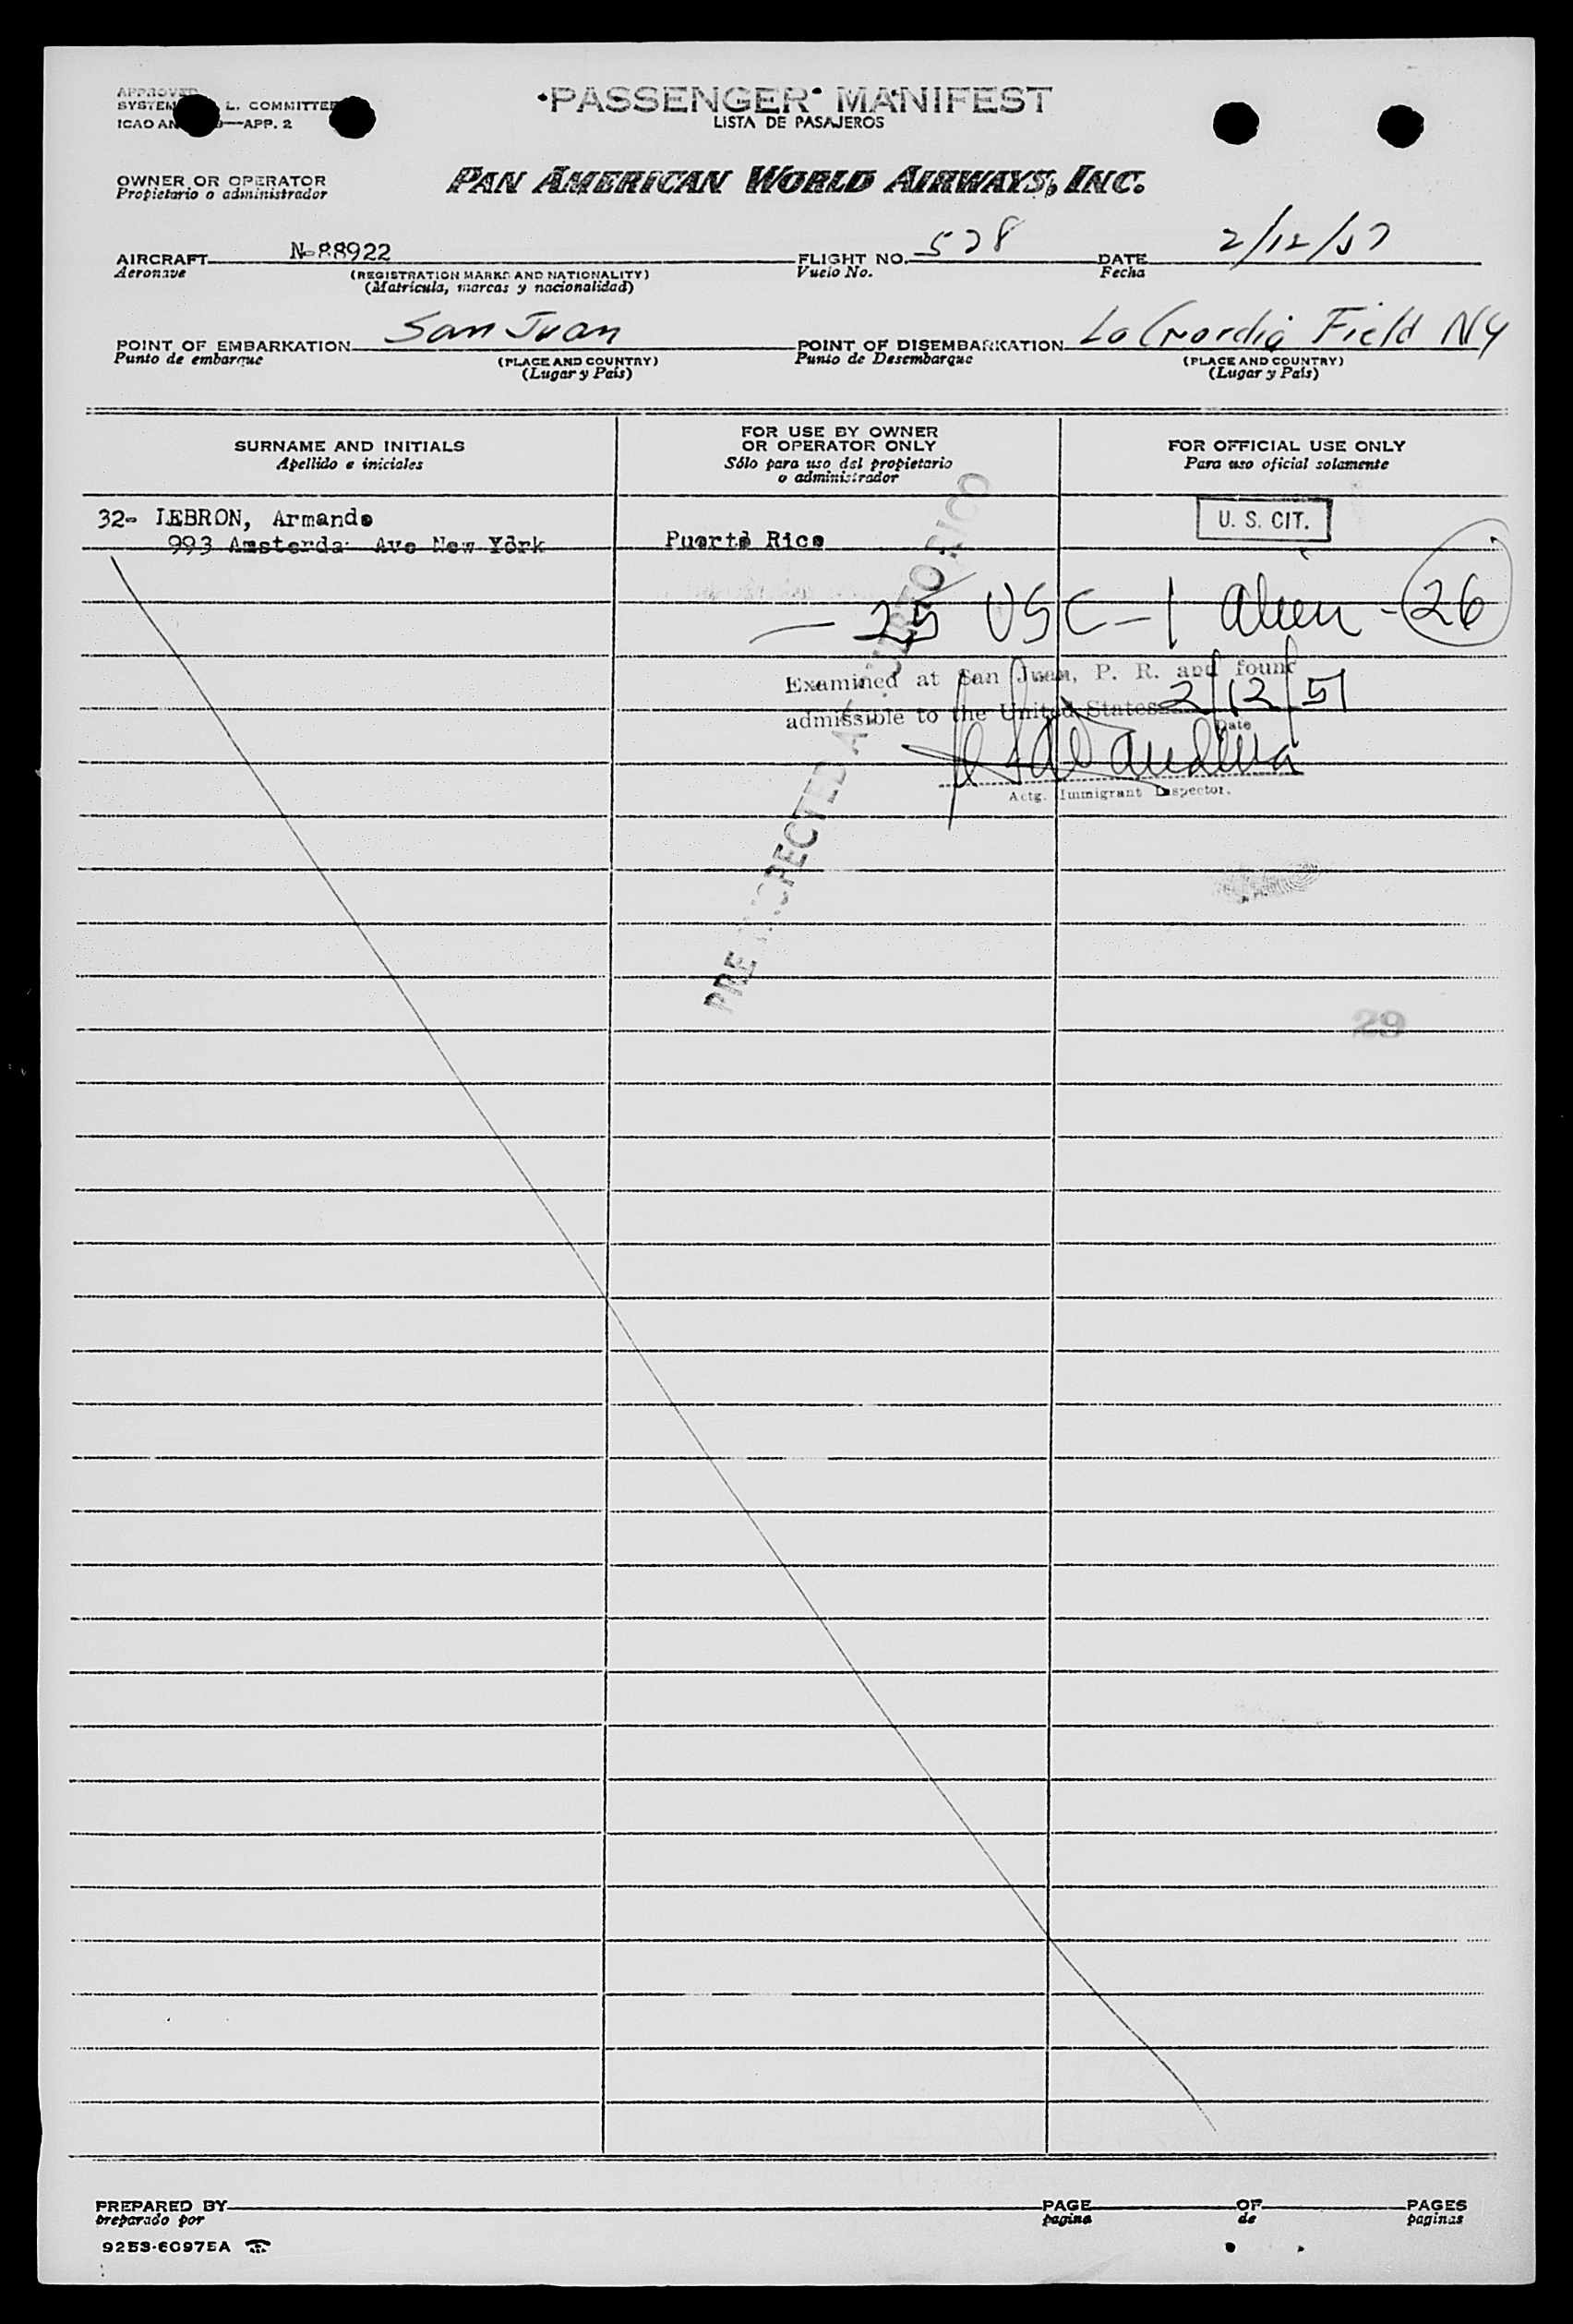 APPROVED
SYSTEM L. COMMITTEE
ICAO AN 9—APP. 2
PASSENGER MANIFEST
LISTA DE PASAJEROS
OWNER OR OPERATOR
Propietario o administrador
PAN AMERICAN WORLD AIRWAYS, INC.
AIRCRAFT N-88922 FLIGHT NO. 528 DATE 2/12/51
Aeronave (REGISTRATION MARKS AND NATIONALITY) Vuelo No. Fecha
(Matrícula, marcas y nacionalidad)
POINT OF EMBARKATION San Juan POINT OF DISEMBARKATION La Guardia Field NY
Punto de embarque (PLACE AND COUNTRY) Punto de Desembarque (PLACE AND COUNTRY)
(Lugar y País) (Lugar y País)
SURNAME AND INITIALS FOR USE BY OWNER OR OPERATOR ONLY FOR OFFICIAL USE ONLY
Apellido e iniciales Sólo para uso del propietario o administrador Para uso oficial solamente
32- LEBRON, Armando U. S. CIT.
993 Amsterda Ave New York Puerto Rico
— 25 USC - 1 alien - 26
Examined at San Juan, P. R. and found
admissible to the United States 2/12/51
Date
Actg. Immigrant Inspector.
29
PREPARED BY PAGE OF PAGES
preparado por pagina de paginas
9253-6097EA